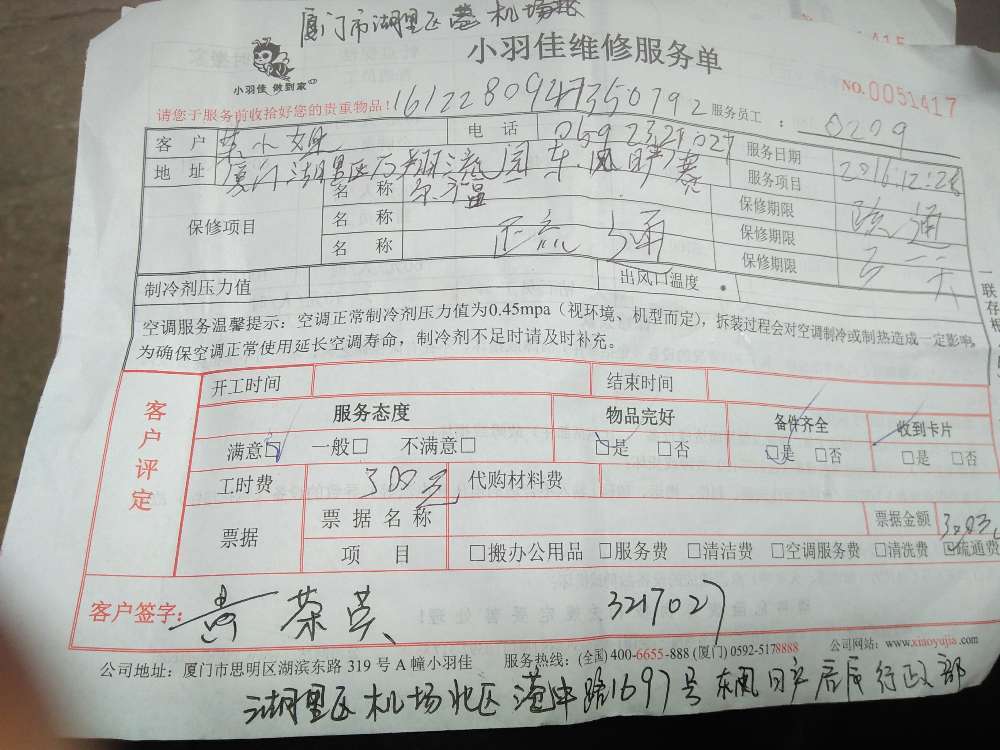 厦门市湖里区 机场
小羽佳 做到家
小羽佳维修服务单
NO.0051417
请您于服务前收拾好您的贵重物品!
服务员工: 0209
客户 小姐 电话 服务日期 2016.12.28
地址 厦门湖里区 流园东风 服务项目 疏通
保修项目 名称 保修期限
名称 疏通 保修期限
名称 保修期限
制冷剂压力值 出风口温度
空调服务温馨提示:空调正常制冷剂压力值为0.45mpa(视环境、机型而定),拆装过程会对空调制冷或制热造成一定影响。
为确保空调正常使用延长空调寿命,制冷剂不足时请及时补充。
一联存根
客户评定
开工时间 结束时间
服务态度 物品完好 备件齐全 收到卡片
满意☑ 一般□ 不满意□ ☑是 □否 ☑是 □否 □是 □否
工时费 300元 代购材料费
票据 票据名称 票据金额 300元
项目 □搬办公用品 □服务费 □清洁费 □空调服务费 □清洗费 ☑疏通费
客户签字: 黄茶英 3217027
公司地址:厦门市思明区湖滨东路 319 号 A 幢小羽佳 服务热线:(全国) 400-6655-888 (厦门) 0592-5178888 公司网站:www.xiaoyujia.com
湖里区机场北区港中路1697号东风日产 行政部